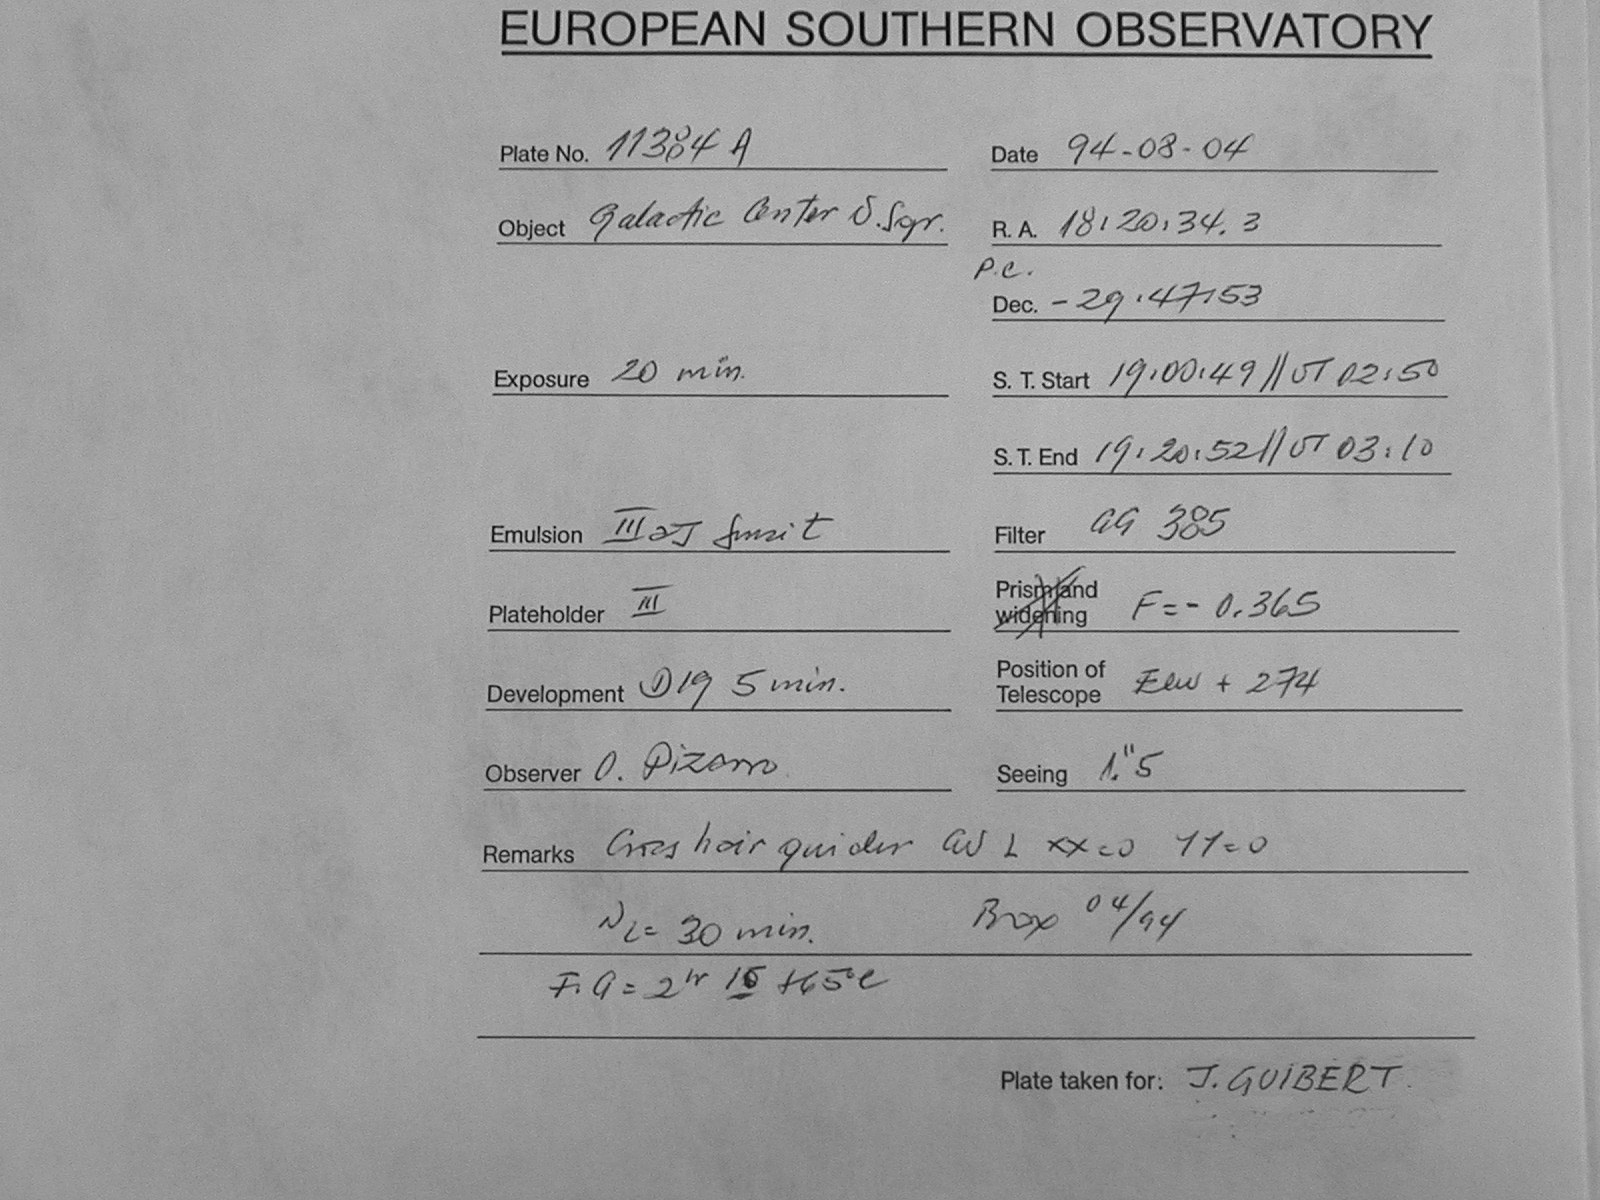 EUROPEAN SOUTHERN OBSERVATORY
Plate No. 11384 A
Date 94-08-04
Object Galactic Center S.Sgr.
R. A. 18:20:34.3
P.C.
Dec. -29:47:53
Exposure 20 min.
S. T. Start 19:00:49 // UT 02:50
S. T. End 19:20:52 // UT 03:10
Emulsion III aJ
Filter GG 385
Plateholder III
Prism and widening F=- 0.365
Development D19 5 min.
Position of Telescope + 274
Observer O. Pizarro
Seeing 1."5
Remarks Cross hair guider xx=0 YY=0
30 min. Box 04/94
= 2hr +65°C
Plate taken for: J. GUIBERT.